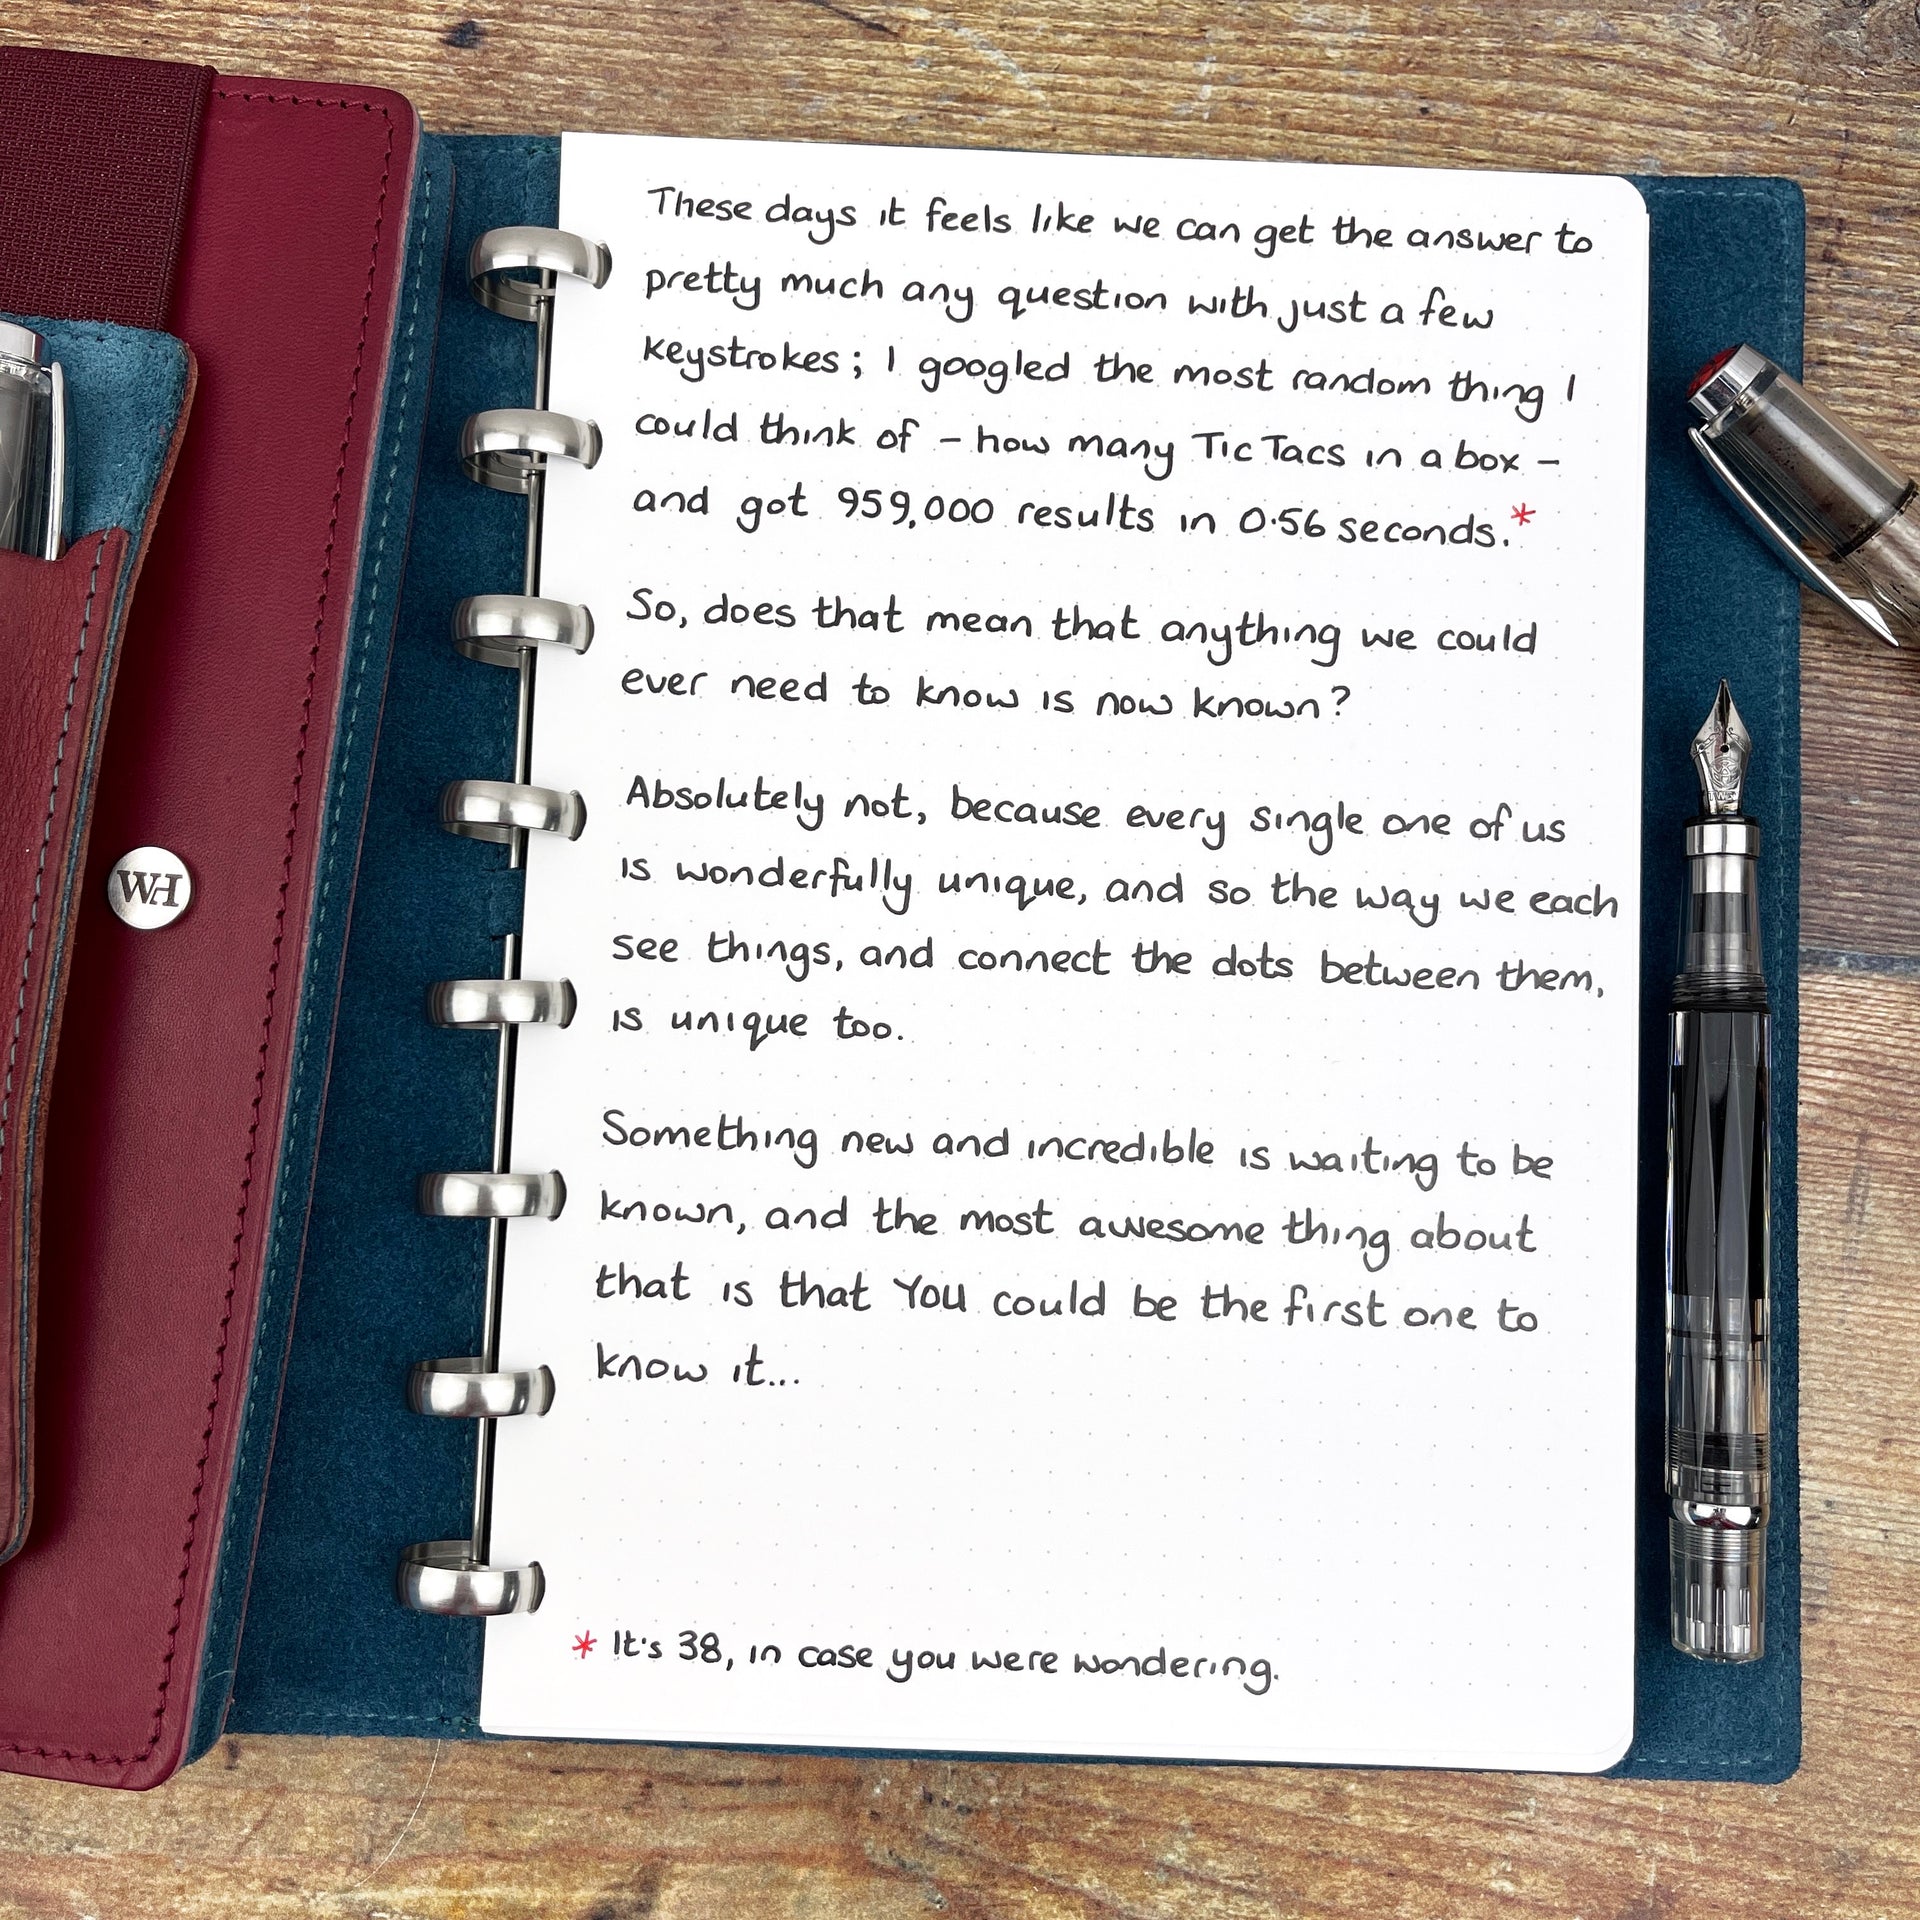 These days it feels like we can get the answer to
pretty much any question with just a few
keystrokes; I googled the most random thing I
could think of - how many Tic Tacs in a box -
and got 959,000 results in 0.56 seconds.*
So, does that mean that anything we could
ever need to know is now known?
Absolutely not, because every single one of us
is wonderfully unique, and so the way we each
see things, and connect the dots between them,
is unique too.
Something new and incredible is waiting to be
known, and the most awesome thing about
that is that YOU could be the first one to
know it...
* It's 38, in case you were wondering.
WH